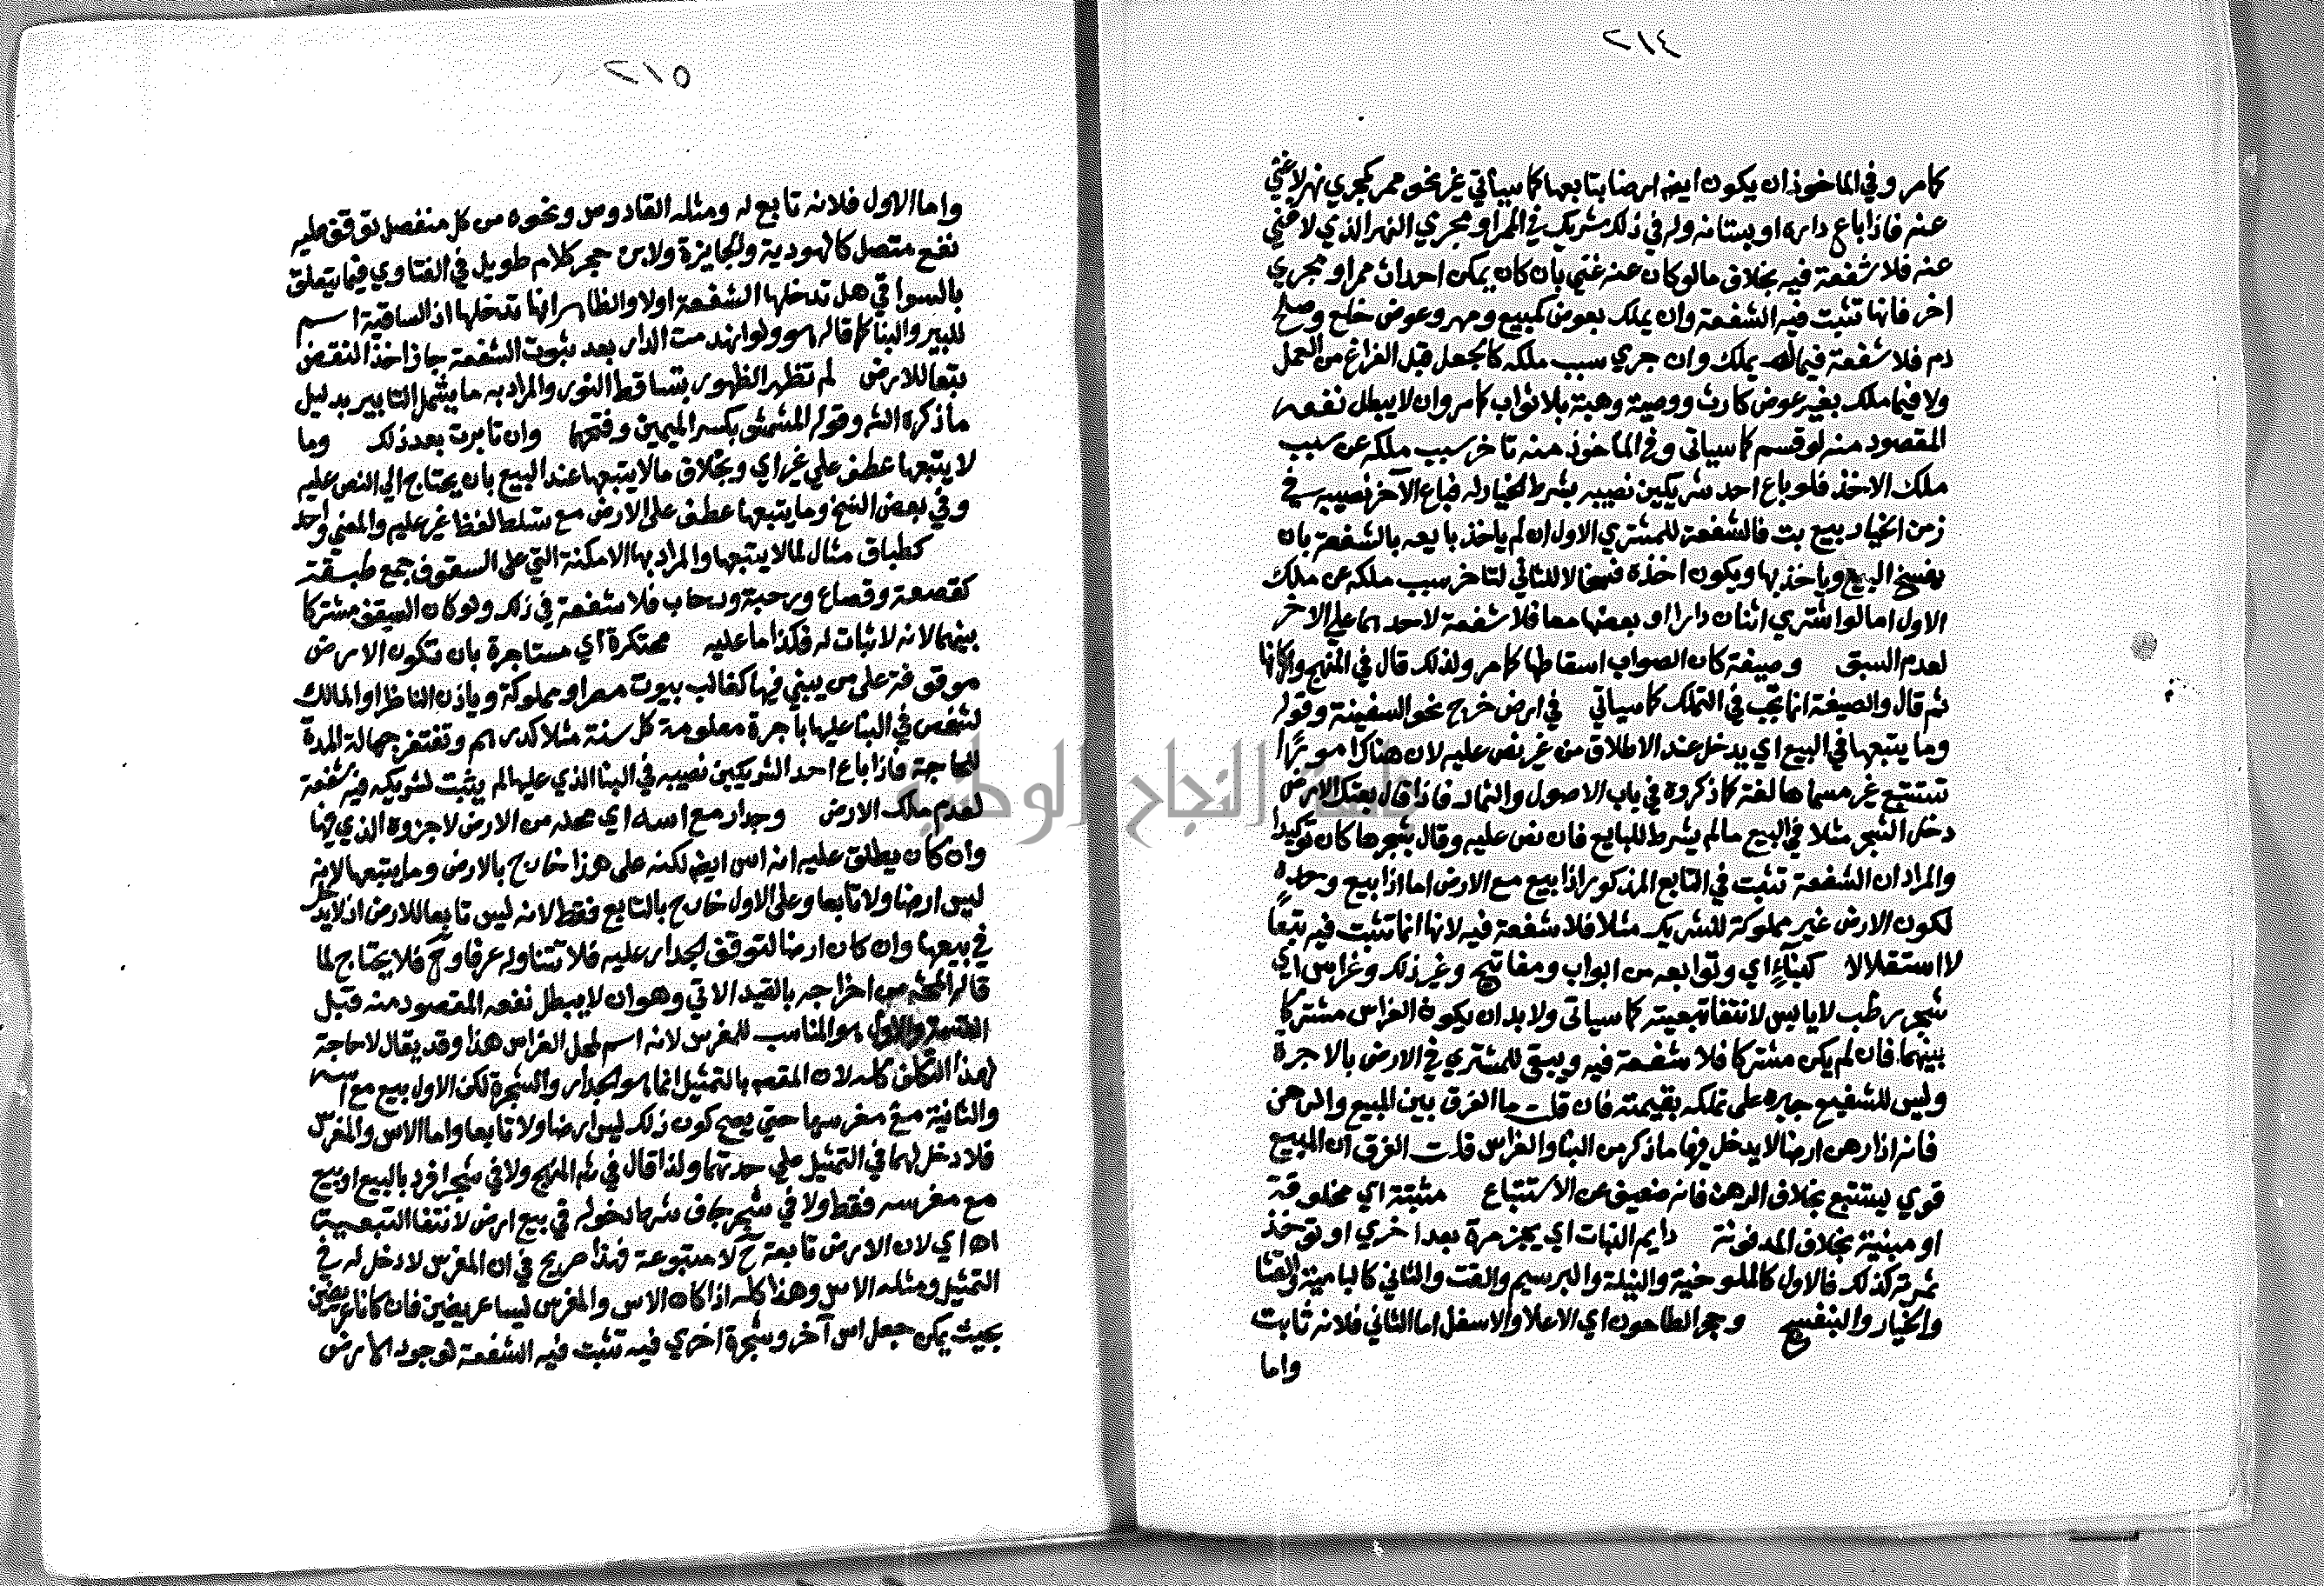 ٢١٤
كما مر وفي الماخوذ ان يكون ايضا ارضا بتابعها كما سيأتي غير نحو ممر كمجري نهر لا غني
عنه فاذا باع داره او بستانه وله في ذلك شريك في الممر او مجري النهر الذي لا غني
عنه فلا شفعة فيه بخلاف ما لو كان عنه غني بان كان يمكن احداث ممر او مجري
اخر فانها تثبت فيه الشفعة وان يملك بعوض كمبيع ومهر وعوض خلع وصلح
دم فلا شفعة فيما لم يملك وان جري سبب ملكه كالجعل قبل الفراغ من العمل
ولا فيما ملك بغير عوض كارث ووصية وهبة بلا ثواب كما مر وان لا يبطل نفعه
المقصود منه لو قسم كما سياتي وفي الماخوذ منه تاخر سبب ملكه عن سبب
ملك الاخذ فلو باع احد شريكين نصيبه بشرط الخيار له فباع الآخر نصيبه في
زمن الخيار بيع بت فالشفعة للمشتري الاول ان لم ياخذ بايعه بالشفعة بان
يفسخ البيع وياخذ بها ويكون اخذه فسخا لا للثاني لتاخر سبب ملكه عن ملك
الاول اما لو اشتري اثنان دارا او بعضها معا فلا شفعة لاحدهما علي الاخر
لعدم السبق وصيغة كان الصواب اسقاطها كما مر ولذلك قال في المنهج واركانها
ثم قال والصيغة انما تجب في التملك كما سياتي في ارض خرج نحو السفينة وقوله
وما يتبعها في البيع اي يدخل عند الاطلاق من غير نص عليه لان هناك امورا
تستتبع غير مسماها لغة كما ذكروه في باب الاصول والثمار فاذا قال بعتك الارض
دخل الشجر مثلا في البيع ما لم يشرط للبايع فان نص عليه وقال بشجرها كان توكيدا
والمراد ان الشفعة تثبت في التابع المذكور اذا بيع مع الارض اما اذا بيع وحده
لكون الارض غير مملوكة للشريك مثلا فلا شفعة فيه لانها انما تثبت فيه تبعًا
لا استقلالا كبناء اي وتوابعه من ابواب ومفاتيح وغير ذلك وغراس اي
شجر رطب لا يابس لانتفا تبعيته كما سياتي ولا بد ان يكون الغراس مشتركا
بينهما فان لم يكن مشتركا فلا شفعة فيه ويبقي للمشتري في الارض بالاجرة
وليس للشفيع جبره علي تملكه بقيمته فان قلت ما الفرق بين المبيع والرهن
فانه اذا رهن ارضا لا يدخل فيها ما ذكر من البنا والغراس قلت الفرق ان المبيع
قوي يستتبع بخلاف الرهن فانه ضعيف عن الاستتباع مثبتة اي مخلوقة
او مبنية بخلاف المدفونة دايم النبات اي يجز مرة بعد اخري او توخذ
ثمرته كذلك فالاول كالملوخية والنيلة والبرسيم والقت والثاني كالبامية والقثا
والخيار والبنفسج وحجر الطاحون اي الاعلا والاسفل اما الثاني فلانه ثابت
واما
٢١٥
واما الاول فلانه تابع له ومثله القادوس ونحوه من كل منفصل توقف عليه
نفع متصل كالهودية والجايزة ولابن حجر كلام طويل في الفتاوي فيما يتعلق
بالسواقي هل تدخلها الشفعة اولا والظاهر انها تدخلها اذ الساقية اسم
للبير والبنا كما قاله هو ولو انهدمت الدار بعد ثبوت الشفعة جاز اخذ النقض
تبعا للارض لم تظهر الظهور بتساقط النور والمراد به ما يشمل التابير بدليل
ما ذكره الش وقوله المشمش بكسر الميمين وفتحهما وان تابرت بعد ذلك وما
لا يتبعها عطف علي غير اي وبخلاف ما لا يتبعها عند البيع بان يحتاج الي النص عليه
وفي بعض النسخ وما يتبعها عطف على الارض مع تسلط لفظ غير عليه والمعني واحد
كطباق مثال لما لا يتبعها والمراد بها الامكنة التي على السقوف جمع طبقة
كقصعة وقصاع ورحبة ورحاب فلا شفعة في ذلك ولو كان السقف مشتركا
بينهما لانه لا ثبات له فكذا ما عليه محتكرة اي مستاجرة بان تكون الارض
موقوفة على من يبني فيها كغالب بيوت مصر او مملوكة وياذن الناظر او المالك
لشخص في البنا عليها باجرة معلومة كل سنة مثلا كدرهم وتغتفر جهالة المدة
للحاجة فاذا باع احد الشريكين نصيبه في البنا الذي عليها لم يثبت لشريكه فيه شفعة
لعدم ملك الارض وجدار مع اسه اي محله من الارض لا جزوه الذي فيها
وان كان يطلق عليه انه اس ايضا لكنه على هذا خارج بالارض وما يتبعها لانه
ليس ارضا ولا تابعا وعلى الاول خارج بالتابع فقط لانه ليس تابعا للارض اذ لا يدخل
في بيعها وان كان ارضا لتوقف الجدار عليه فلا تتناوله عرفا وح فلا يحتاج لما
قاله المحشي من اخراجه بالقيد الاتي وهو ان لا يبطل نفعه المقصود منه قبل
القسمة والاول هو المناسب للمغرس لانه اسم لمحل الغراس هذا وقد يقال لا حاجة
لهذا التكلف كله لان المقصود بالتمثيل انما هو الجدار والشجرة لكن الاول بيع مع اسه
والثانية مع مغرسها حتي يصح كون ذلك ليس ارضا ولا تابعا واما الاس والمغرس
فلا دخل لهما في التمثيل علي حدتهما ولذا قال في شرح المنهج ولا في شجر افرد بالبيع او بيع
مع مغرسه فقط ولا في شجر جاف شرط دخوله في بيع ارض لانتفا التبعية
اه اي لان الارض تابعة ح لا متبوعة فهذا صريح في ان المغرس لا دخل له في
التمثيل ومثله الاس وهذا كله اذا كان الاس والمغرس ليسا عريضين فان كانا عريضين
بحيث يمكن جعل اس آخر وشجرة اخري فيه تثبت فيه الشفعة لوجود الارض
جامعة النجاح الوطنية